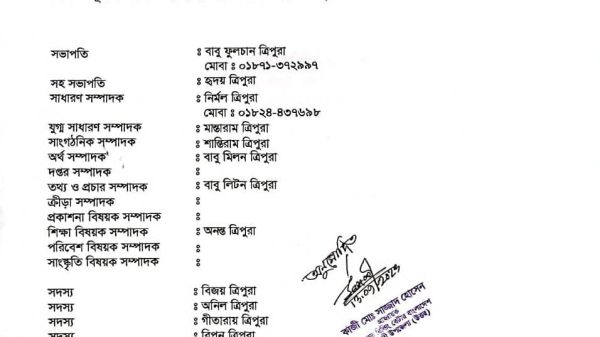 সভাপতি : বাবু ফুলচান ত্রিপুরা
মোবা : ০১৮৭১-৩৭২৯৯৭
সহ সভাপতি : হৃদয় ত্রিপুরা
সাধারণ সম্পাদক : নির্মল ত্রিপুরা
মোবা : ০১৮২৪-৪৩৭৬৯৮
যুগ্ম সাধারণ সম্পাদক : মান্তারাম ত্রিপুরা
সাংগঠনিক সম্পাদক : শান্তিরাম ত্রিপুরা
অর্থ সম্পাদক : বাবু মিলন ত্রিপুরা
দপ্তর সম্পাদক :
তথ্য ও প্রচার সম্পাদক : বাবু লিটন ত্রিপুরা
ক্রীড়া সম্পাদক :
প্রকাশনা বিষয়ক সম্পাদক :
শিক্ষা বিষয়ক সম্পাদক : অনন্ত ত্রিপুরা
পরিবেশ বিষয়ক সম্পাদক :
সাংস্কৃতি বিষয়ক সম্পাদক :
অনুমোদিত
সদস্য : বিজয় ত্রিপুরা
সদস্য : অনিল ত্রিপুরা
সদস্য : গীতারায় ত্রিপুরা
সদস্য : রিপন ত্রিপুরা
কাজী মোঃ সাজ্জাদ হোসেন